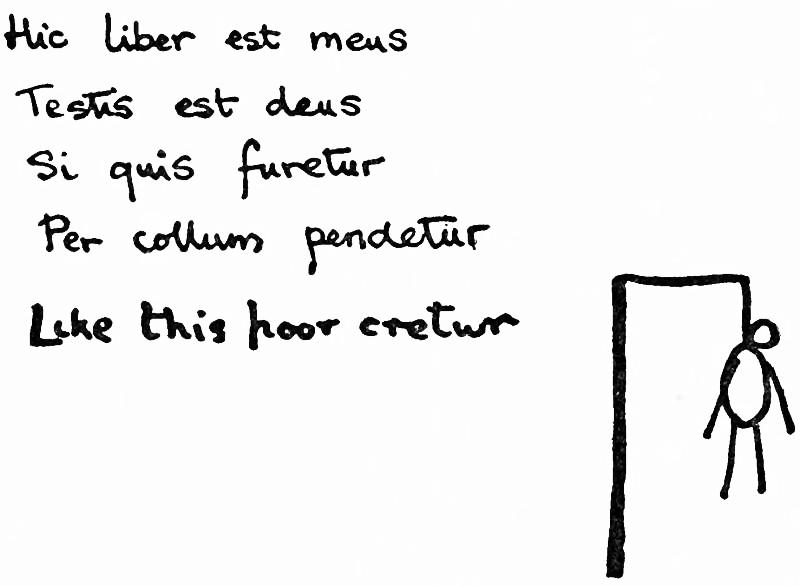 Hic liber est meus
Testis est deus
Si quis furetur
Per collum pendetur
Like this poor cretur